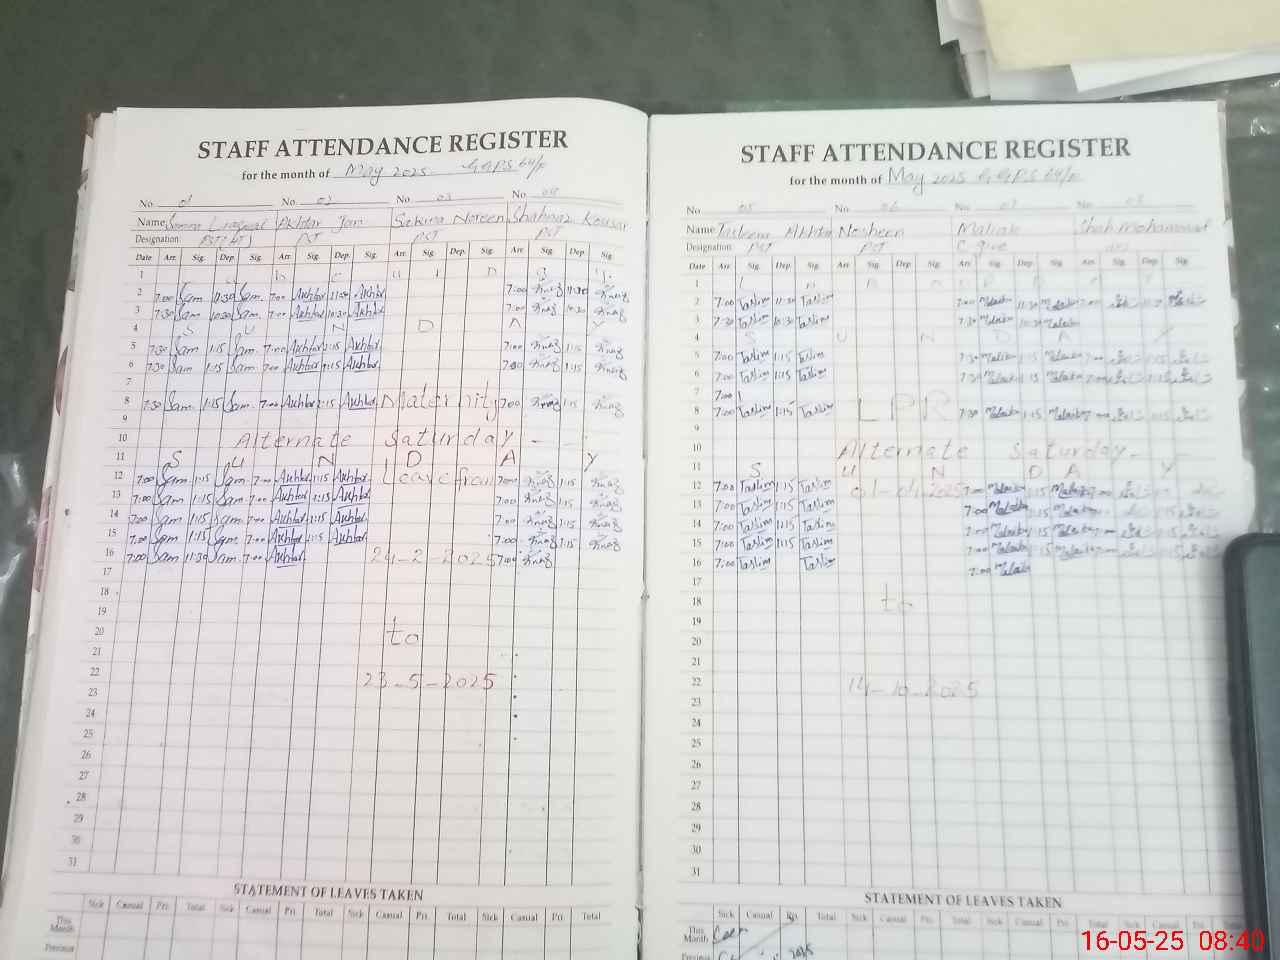 STAFF ATTENDANCE REGISTER
for the month of May 2025 GGPS
No 01 No 02 No 03 No 04
Name Akhtar Jan Sakina Noreen Shahnaz Kousar
Designation: PST PST PST
Date Arr. Sig. Dep. Sig. Arr. Sig. Dep. Sig. Arr. Sig. Dep. Sig. Arr. Sig. Dep. Sig.
1
2 7:00 Sam 11:30 Sam 7:00 Akhtar 11:30 Akhtar 7:00 11:30
3 7:30 Sam 10:30 Sam 7:00 Akhtar 10:30 Akhtar 7:00 10:30
4 S U N D A Y
5 7:30 Sam 1:15 Sam 7:00 Akhtar 1:15 Akhtar 7:00 1:15
6 7:30 Sam 1:15 Sam 7:00 Akhtar 1:15 Akhtar 7:00 1:15
7
8 7:30 Sam 1:15 Sam 7:00 Akhtar 1:15 Akhtar Maternity 7:00 1:15
9
10 Alternate Saturday
11 S U N D A Y
12 7:00 Sam 1:15 Sam 7:00 Akhtar 1:15 Akhtar Leave from 7:00 1:15
13 7:00 Sam 1:15 Sam 7:00 Akhtar 1:15 Akhtar 7:00 1:15
14 7:00 Sam 1:15 Sam 7:00 Akhtar 1:15 Akhtar 7:00 1:15
15 7:00 Sam 1:15 Sam 7:00 Akhtar 1:15 Akhtar 7:00 1:15
16 7:00 Sam 11:30 Sam 7:00 Akhtar 24-2-2025 7:00
17
18
19
20 to
21
22 23-5-2025
23
24
25
26
27
28
29
30
31
STATEMENT OF LEAVES TAKEN
Sick Casual Pri. Total Sick Casual Pri. Total Sick Casual Pri. Total Sick Casual Pri. Total
This Month
Previous
STAFF ATTENDANCE REGISTER
for the month of May 2025 GGPS
No 05 No 06 No 07 No 08
Name Tasleem Akhtar Nosheen Shah mohammad
Designation: PST PST
Date Arr. Sig. Dep. Sig. Arr. Sig. Dep. Sig. Arr. Sig. Dep. Sig. Arr. Sig. Dep. Sig.
1
2 7:00 Taslim 11:30 Taslim 7:00 Malaika 11:30 Malaika 7:00
3 7:30 Taslim 10:30 Taslim 7:30 Malaika 10:30 Malaika
4 S U N D A Y
5 7:00 Taslim 1:15 Taslim 7:30 Malaika 1:15 Malaika 7:00
6 7:00 Taslim 1:15 Taslim 7:30 Malaika 1:15 Malaika 7:00
7 7:00
8 7:00 Taslim 1:15 Taslim LPR 7:30 Malaika 1:15 Malaika 7:00
9
10 Alternate Saturday
11 S U N D A Y
12 7:00 Taslim 1:15 Taslim 01-04-2025 7:00 Malaika 1:15 Malaika 7:00
13 7:00 Taslim 1:15 Taslim 7:00 Malaika 1:15 Malaika 7:00
14 7:00 Taslim 1:15 Taslim 7:00 Malaika 1:15 Malaika 7:00
15 7:00 Taslim 1:15 Taslim 7:00 Malaika 1:15 Malaika 7:00
16 7:00 Taslim Taslim 7:00 Malaika
17
18 to
19
20
21
22 14-10-2025
23
24
25
26
27
28
29
30
31
STATEMENT OF LEAVES TAKEN
Sick Casual Pri. Total Sick Casual Pri. Total Sick Casual Pri. Total Sick Casual Pri. Total
This Month
Previous
16-05-25 08:40